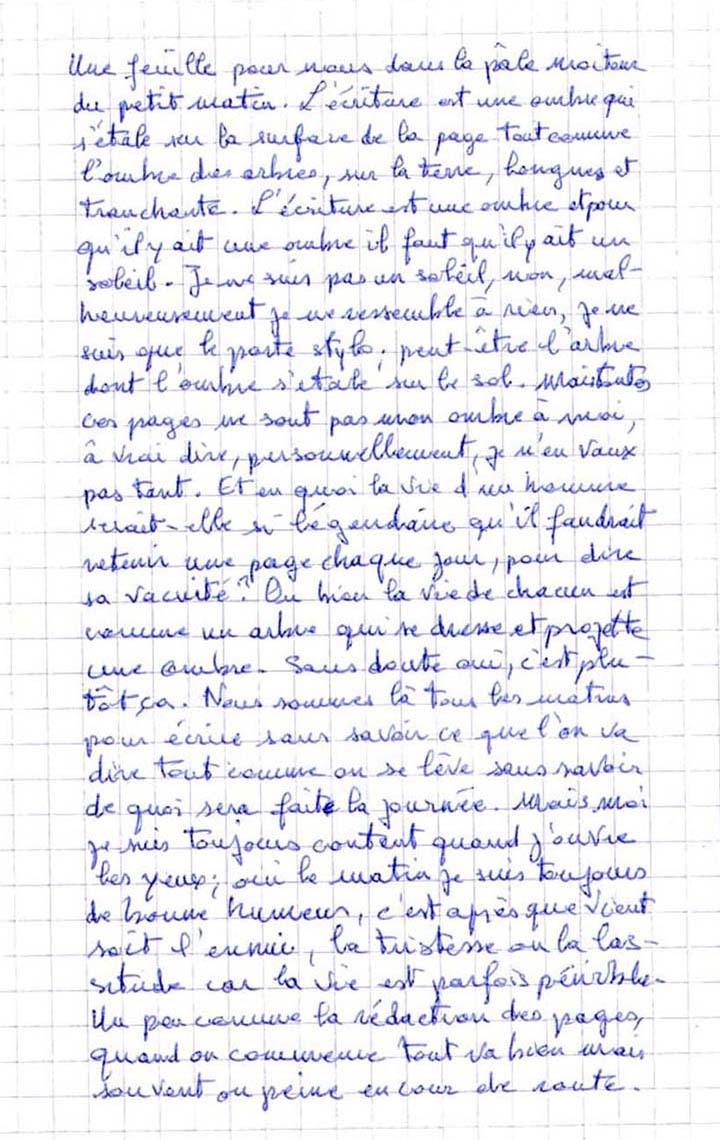 Une feuille pour nous dans la pâle moiteur
du petit matin. L'écriture est une ombre qui
s'étale sur la surface de la page tout comme
l'ombre des arbres, sur la terre, longues et
tranchante. L'écriture est une ombre et pour
qu'il y ait une ombre il faut qu'il y ait un
soleil. Je ne suis pas un soleil, non, mal-
heureusement je ne ressemble à rien, je ne
suis que le porte stylo; peut-être l'arbre
dont l'ombre s'etale sur le sol. Mais toutes
ces pages ne sont pas mon ombre à moi,
à vrai dire, personnellement, je n'en vaux
pas tant. Et en quoi la vie d'un homme
serait-elle si légendaire qu'il faudrait
retenir une page chaque jour, pour dire
sa vacuité? Ou bien la vie de chacun est
comme un arbre qui se dresse et projette
une ombre. Sans doute oui, c'est plu-
tôt ça. Nous sommes là tous les matins
pour écrire sans savoir ce que l'on va
dire tout comme on se lève sans savoir
de quoi sera faite la journée. Mais moi
je suis toujours content quand j'ouvre
les yeux; oui le matin je suis toujours
de bonne humeur, c'est après que vient
soit l'ennui, la tristesse ou la las-
situde car la vie est parfois pénible.
Un peu comme la rédaction des pages,
quand on commence tout va bien mais
souvent on peine en cour de route.